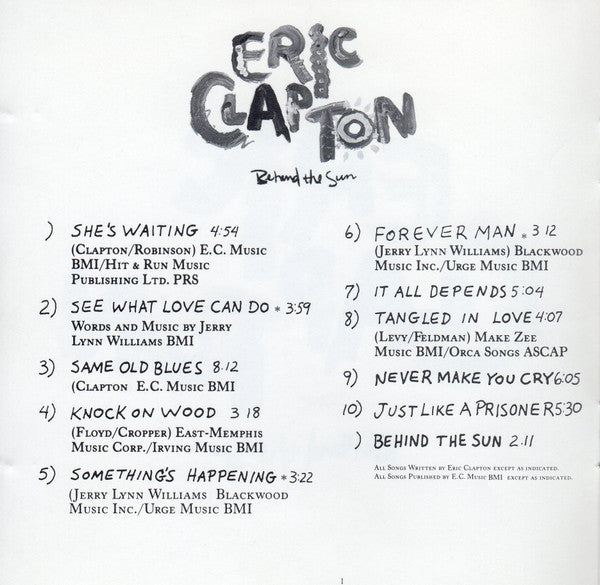 ERIC
CLAPTON
Behind the Sun
) SHE'S WAITING 4:54
(Clapton/Robinson) E.C. Music
BMI/Hit & Run Music
Publishing Ltd. PRS
2) SEE WHAT LOVE CAN DO * 3:59
Words and Music by Jerry
Lynn Williams BMI
3) SAME OLD BLUES 8:12
(Clapton E.C. Music BMI
4) KNOCK ON WOOD 3 18
(Floyd/Cropper) East-Memphis
Music Corp./Irving Music BMI
5) SOMETHING'S HAPPENING * 3:22
(Jerry Lynn Williams Blackwood
Music Inc./Urge Music BMI
6) FOREVER MAN * 3 12
(Jerry Lynn Williams) Blackwood
Music Inc./Urge Music BMI
7) IT ALL DEPENDS 5:04
8) TANGLED IN LOVE 4:07
(Levy/Feldman) Make Zee
Music BMI/Orca Songs ASCAP
9) NEVER MAKE YOU CRY 6:05
10) JUST LIKE A PRISONER 5:30
) BEHIND THE SUN 2.11
All Songs Written by Eric Clapton except as indicated.
All Songs Published by E.C. Music BMI except as indicated.
1